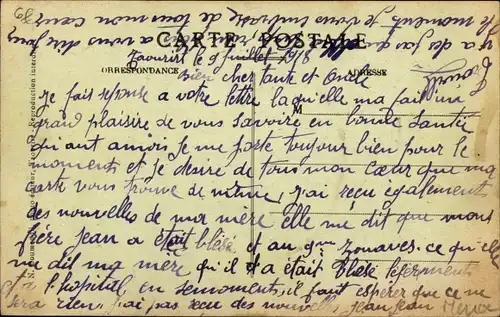 CARTE POSTALE
CORRESPONDANCE
ADRESSE
Taourirt le 9 juillet 1918
bien cher tante et oncle
je fais reponse a votre lettre laquelle ma fait un
grand plaisire de vous savoire en bonne santé
quant amois je me porte toujour bien pour le
moments et je desire de tous mon cœur que ma
carte vous trouve de même, j'ai reçu egalement
des nouvelles de mor mère elle me dit que mon
frère jean a était bléssé et au 9me zouaves. ce qu'elle
me dit ma mère qu'il et a était blesé légerments
et a l'hopital en semoments, il faut espérer que ce ne
sera rien, j'ai pas reçu des nouvelles jean
le moments je vous embrasse de tous mon cœur
a vous dire